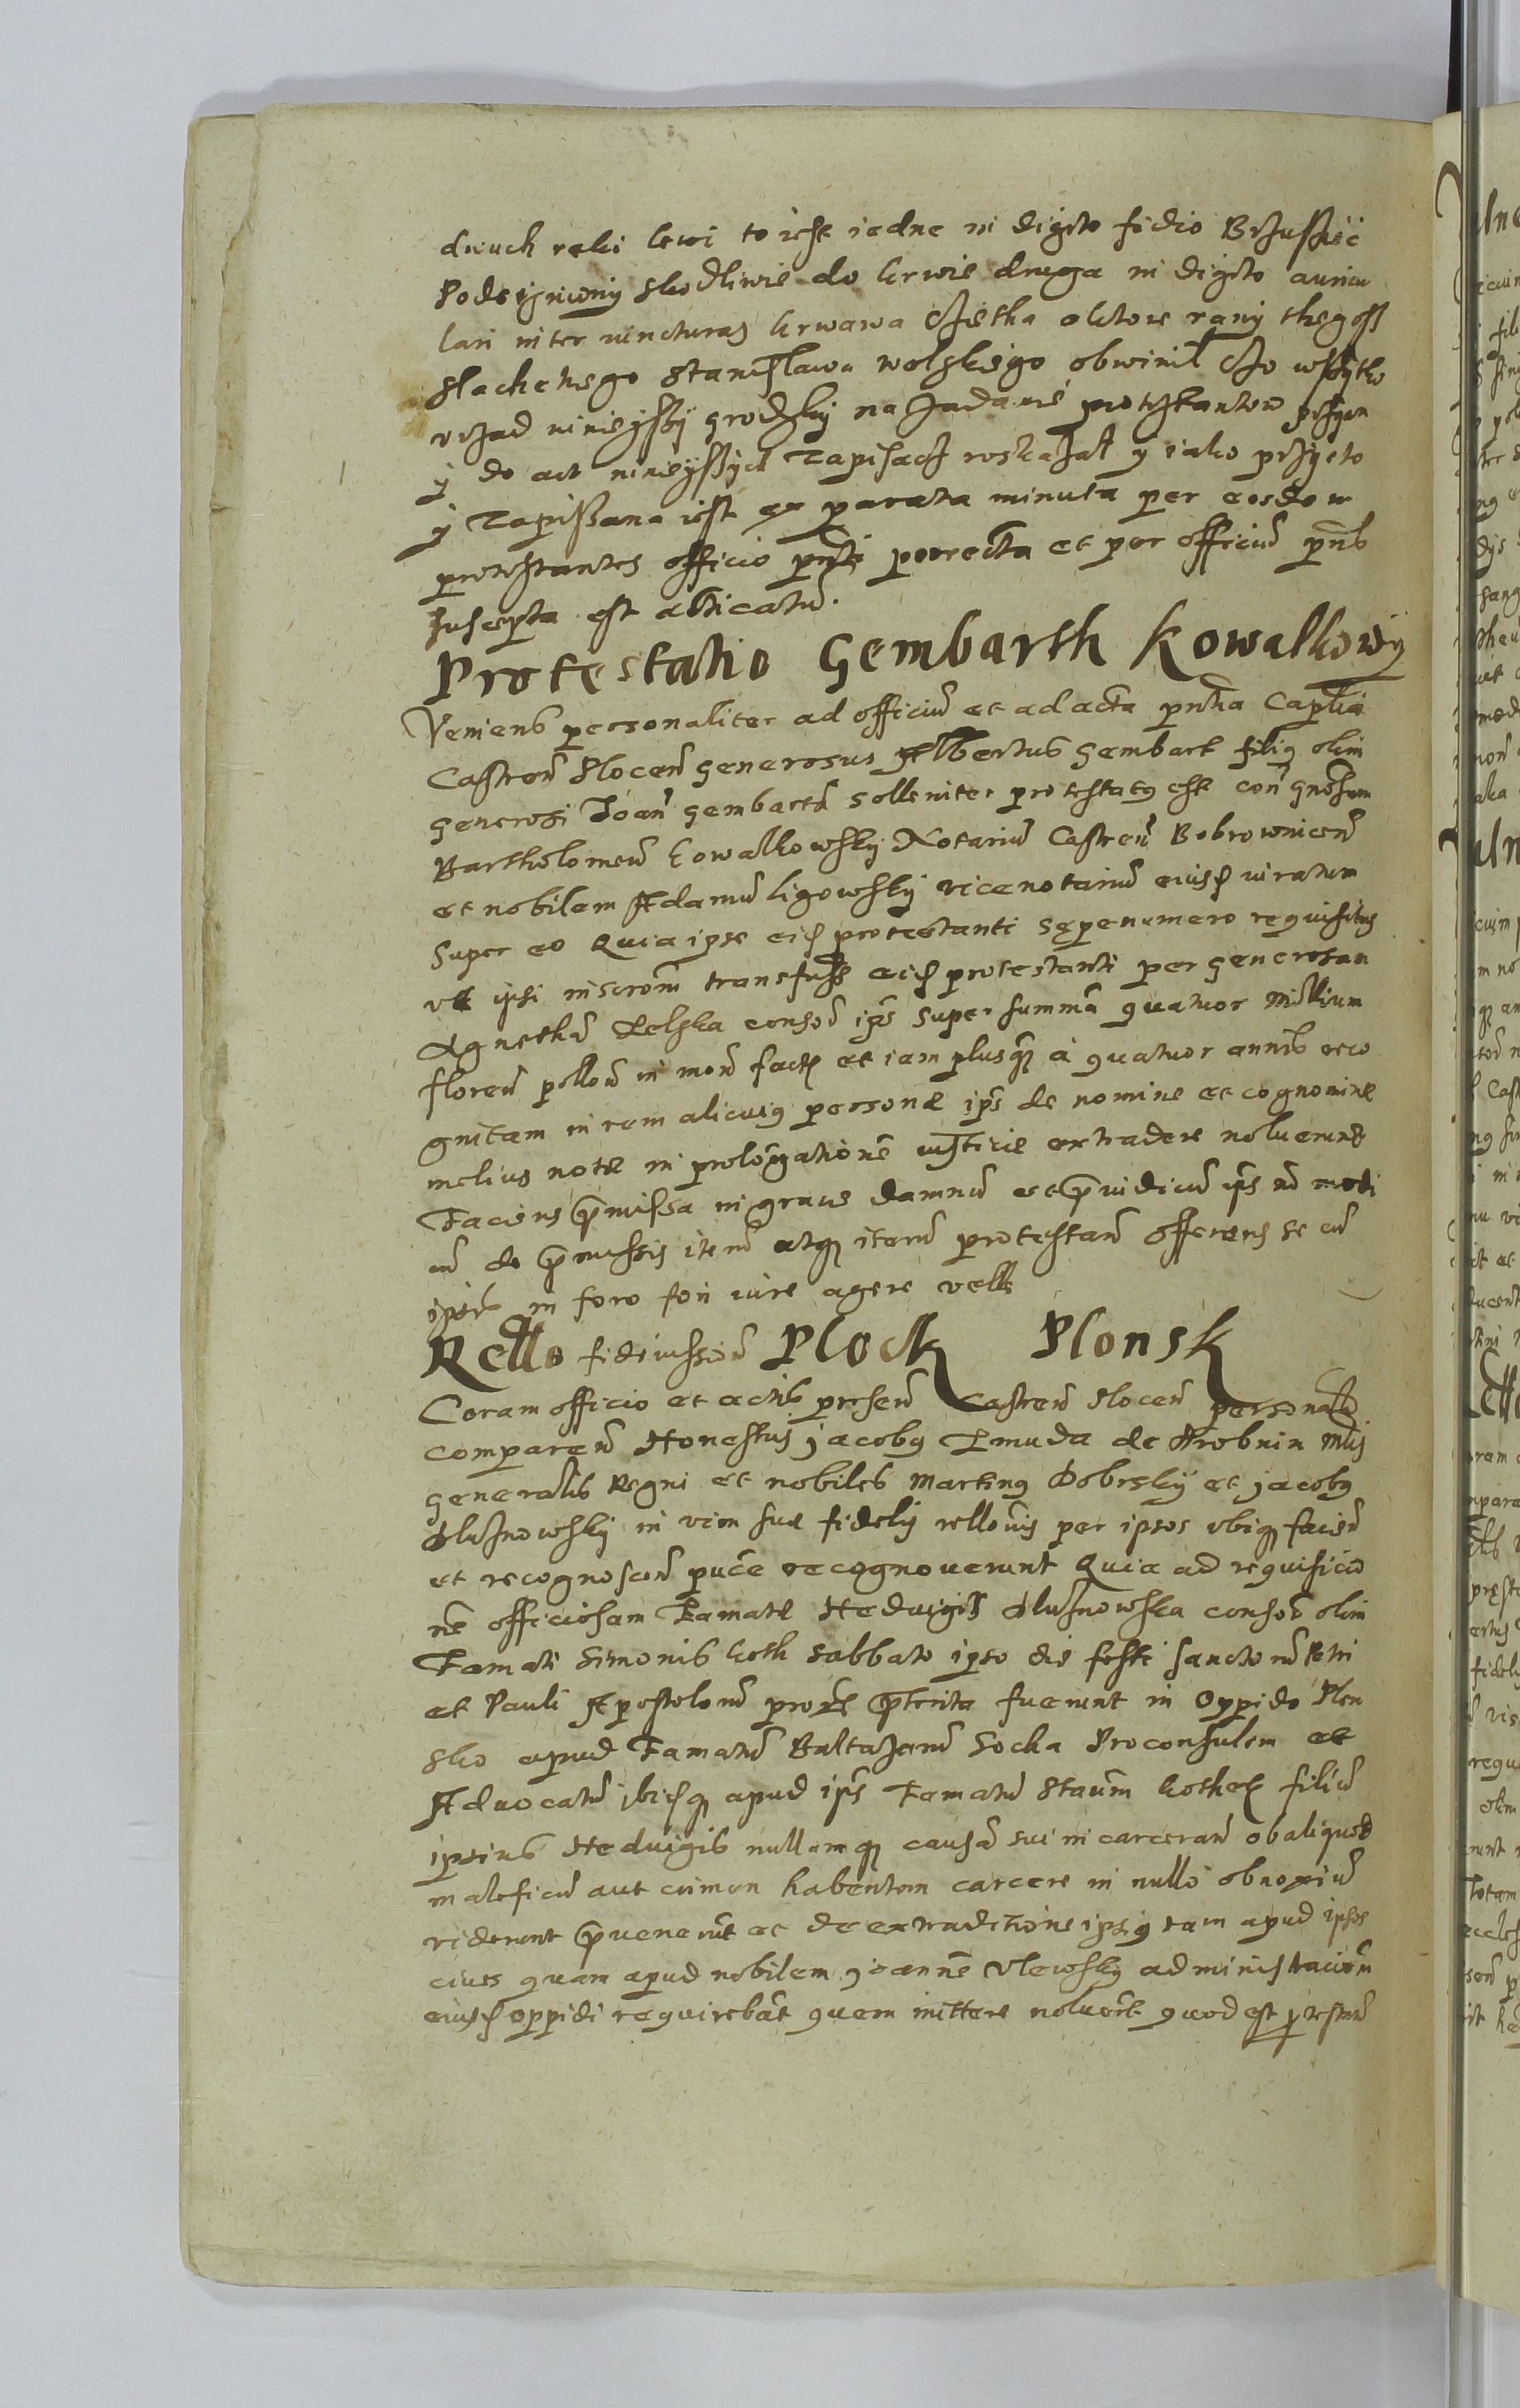 dwuch reki lewi to iest iedne in digito fidio Brzussiec
Podeigniony skodliwie do krwie druga in digito auricu
lari inter iuncturas krwawa czietha o ktore rany thegoss
slachetnego Stanislawa wolskiego obwinil Czo wssytko
vrzad ninieyssÿ grodzky na zadanie protestantow przyon
y do act ninieyssych zapisacz roskazal y iako przyeto
y zapissana iest ex parata minuta per eosdem
protestantes officio pnti porrecta et per officiu pns
suscepta est acticatu.
Protestatio Gembarth Kowalkowsky
Veniens personaliter ad officiu et ad acta pntia Captlia
Castren Plocen generosus Albertus Gembart filius olim
generosi Ioan Gembarth solleniter protestatus est con gnosum
Bartholomeu Kowalkowsky Notariu Castren Bobrownicen
et nobilem Adamu Ligowsky vicenotariu eiusd iuratum
Super eo Quia ipse eisd protestanti sępenumero requisitus
vt ipsi inscrom transfuss eisd protestanti per generosam
Agnetha Lelska consor ips super summa quatuor Millium
floren pollon in mon fact et iam plusq a quatuor annis reco
gnitam in rem alicuius personæ ips de nomine et cognomine
melius notæ in prolongatione iustitiæ extradere noluerunt
Faciens pmissa in graue damnu et piudiciu ips no modi
cu de pmissis iteru atq iteru protestan offerens se cu
ipsis in foro fori iure agere velle
Rello fideiussion Plock Plonsk
Coram officio et actis presen Castren Plocen personalr
comparen Honestus Jacobus Zmuda de Drobnin Mlis
generalis Regni et nobiles Martinus Dobrsky et Jacobus
Dluznowsky in vim suæ fidelis rellonis per ipsos vbiq facien
et recognoscen puce recognouerunt Quia ad requisicio
ne officiosam Famatæ Hedwigis Dluznowska consor olim
Famati Simonis Koth sabbato ipso die festi sanctoru Petri
et Pauli Apostoloru prox pterita fuerunt in Oppido Plon
sko apud Famatu Baltazaru Socha Proconsulem et
Aduocatu ibisq apud ips Famatu Staum Kothek filiu
ipsius Hedwigis nullamq causa sui incarceran ob aliquod
maleficiu aut crimen habentem carcere in nullo obnoxiu
viderunt puenerut et de extraditione ipsius tam apud ipsos
ciues quam apud nobilem Joanne Vlewsky administracion
eiusd oppidi requirebat quem mittere noluert quod est protestan